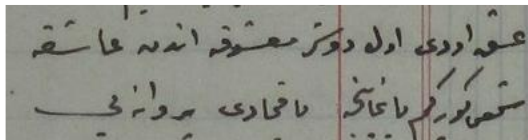 عشق اودى اول دوشر معشوقه اندن عاشقه
شمعى كوركم يانماينجه ياقمادى پروانه يى